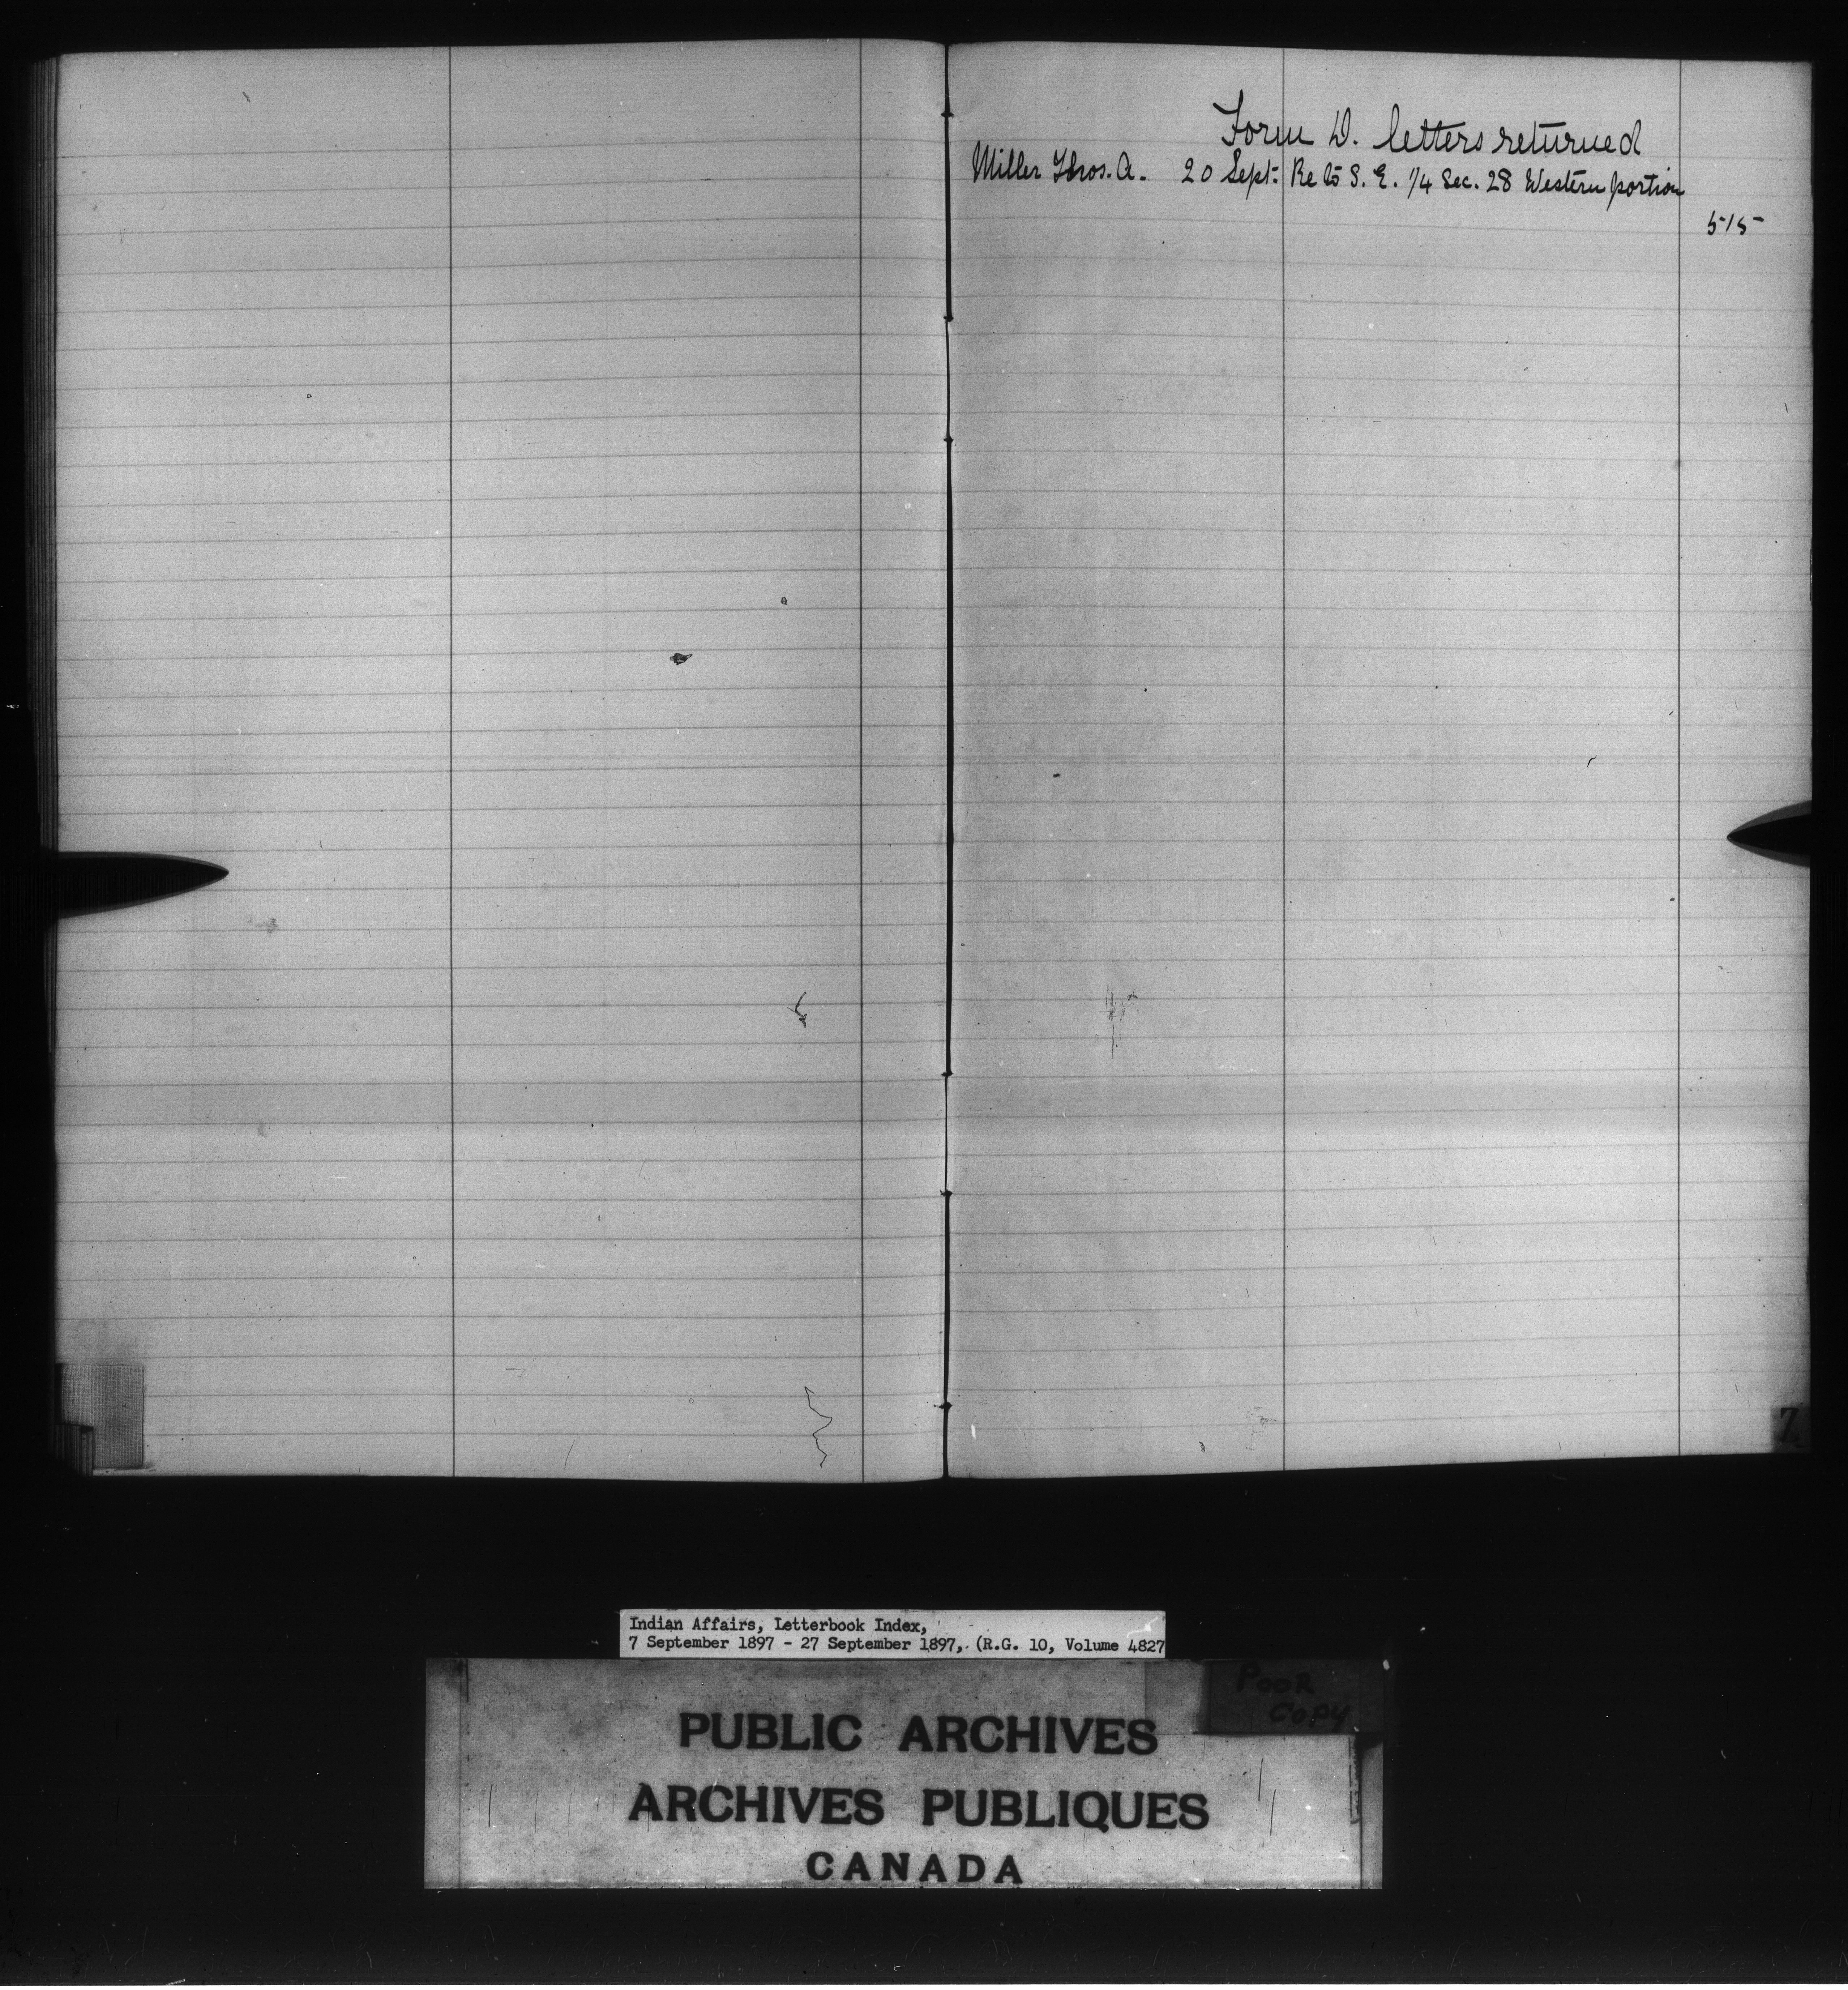 Form D. letters returned
Miller Thos. A. 20 Sept. Re to S. E. 1/4 Sec. 28 Western portion
515
Z
Indian Affairs, Letterbook Index,
7 September 1897 - 27 September 1897, (R.G. 10, Volume 4827
POOR
COPY
PUBLIC ARCHIVES
ARCHIVES PUBLIQUES
CANADA